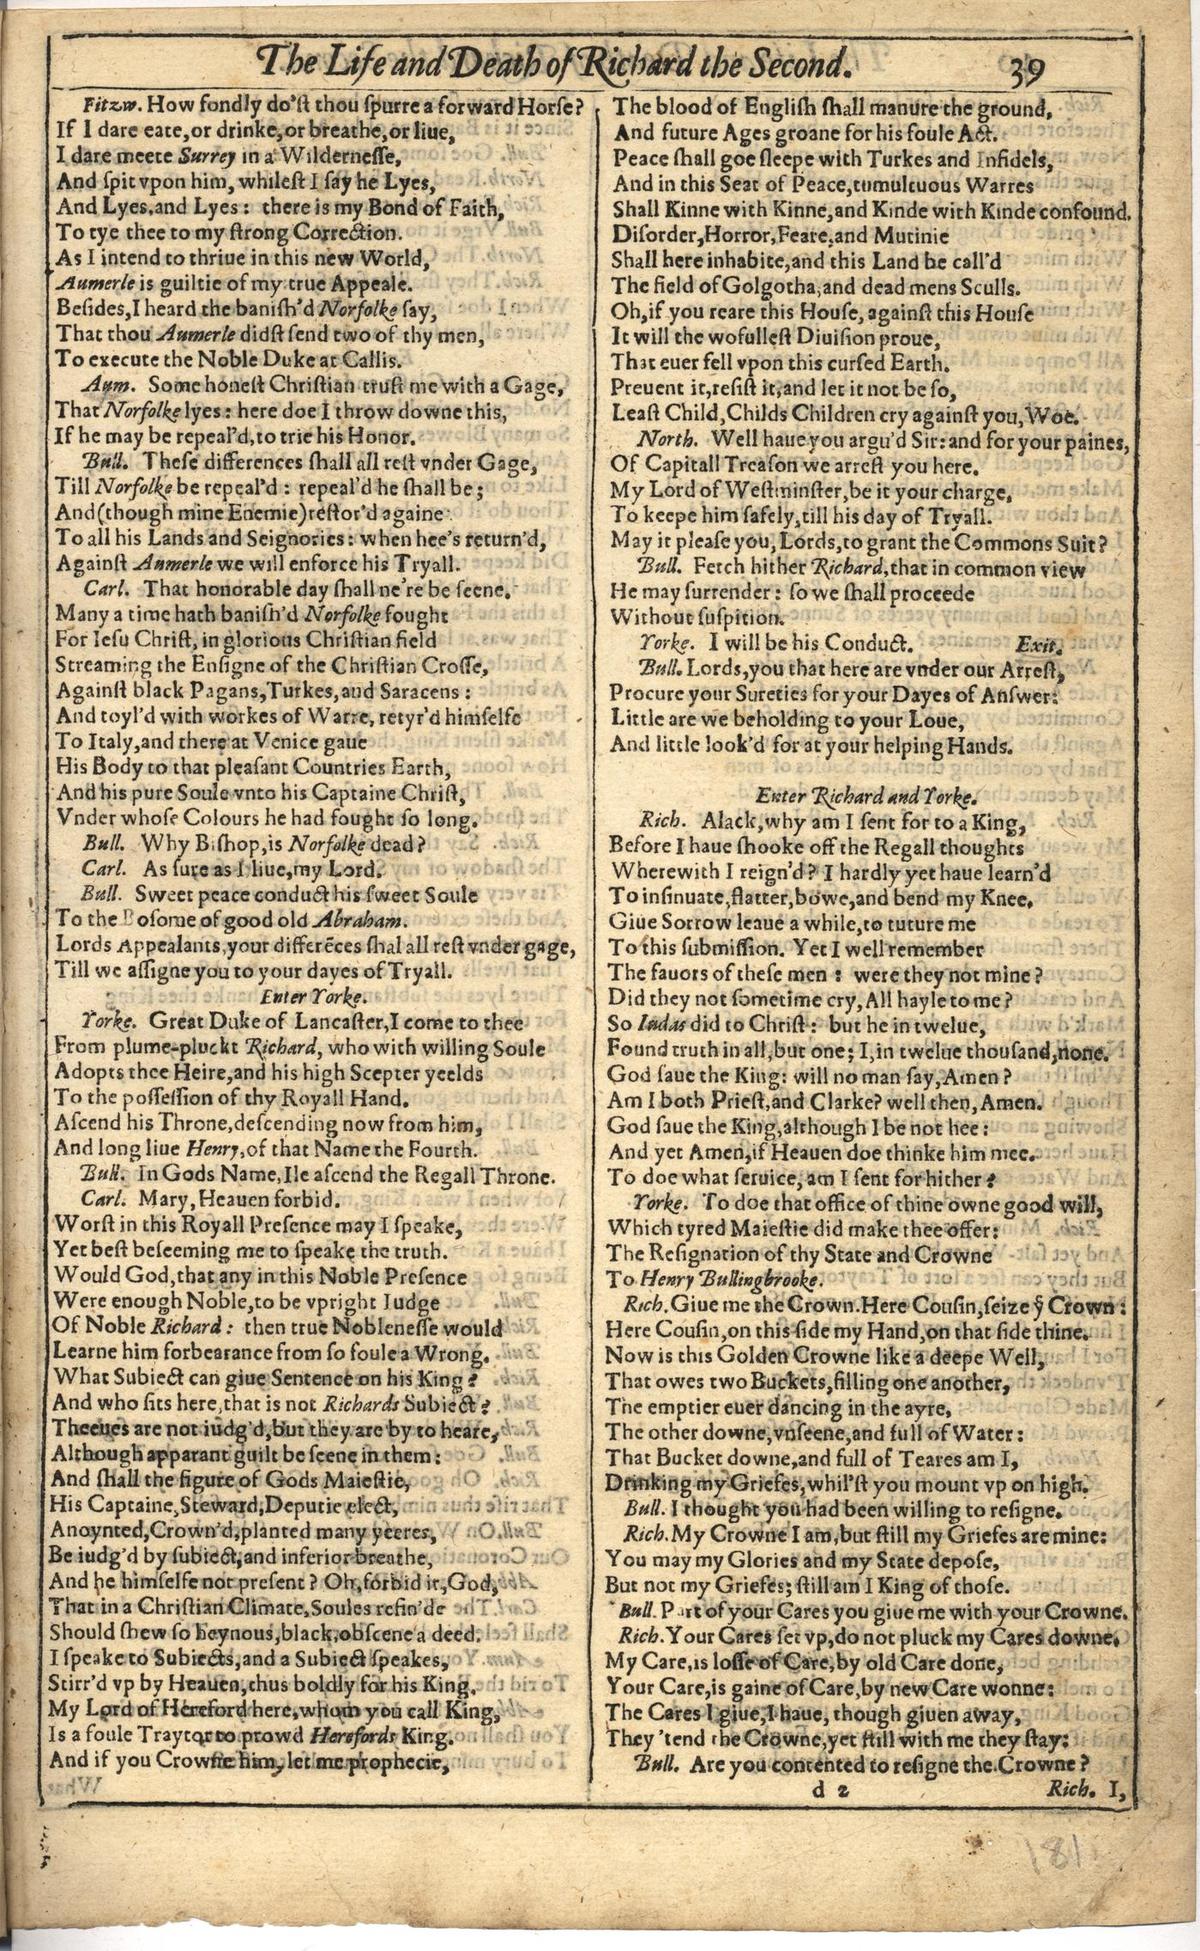 The Life and Death of Richard the Second. 39
Fitzw. How fondly do'ſt thou ſpurre a forward Horſe?
If I dare eate, or drinke, or breathe, or liue,
I dare meete Surrey in a Wilderneſſe,
And ſpit vpon him, whileſt I ſay he Lyes,
And Lyes, and Lyes: there is my Bond of Faith,
To tye thee to my ſtrong Correction.
As I intend to thriue in this new World,
Aumerle is guiltie of my true Appeale.
Beſides, I heard the baniſh'd Norfolke ſay,
That thou Aumerle didſt ſend two of thy men,
To execute the Noble Duke at Callis.
Aum. Some honeſt Chriſtian truſt me with a Gage,
That Norfolke lyes: here doe I throw downe this,
If he may be repeal'd, to trie his Honor.
Bull. Theſe differences ſhall all reſt vnder Gage,
Till Norfolke be repeal'd: repeal'd he ſhall be;
And (though mine Enemie) reſtor'd againe
To all his Lands and Seignories: when hee's return'd,
Againſt Aumerle we will enforce his Tryall.
Carl. That honorable day ſhall ne're be ſeene.
Many a time hath baniſh'd Norfolke fought
For Ieſu Chriſt, in glorious Chriſtian field
Streaming the Enſigne of the Chriſtian Croſſe,
Againſt black Pagans, Turkes, and Saracens:
And toyl'd with workes of Warre, retyr'd himſelfe
To Italy, and there at Venice gaue
His Body to that pleaſant Countries Earth,
And his pure Soule vnto his Captaine Chriſt,
Vnder whoſe Colours he had fought ſo long.
Bull. Why Biſhop, is Norfolke dead?
Carl. As ſure as I liue, my Lord.
Bull. Sweet peace conduct his ſweet Soule
To the Boſome of good old Abraham.
Lords Appealants, your differēces ſhal all reſt vnder gage,
Till we aſſigne you to your dayes of Tryall.
Enter Yorke.
Yorke. Great Duke of Lancaſter, I come to thee
From plume-pluckt Richard, who with willing Soule
Adopts thee Heire, and his high Scepter yeelds
To the poſſeſſion of thy Royall Hand.
Aſcend his Throne, deſcending now from him,
And long liue Henry, of that Name the Fourth.
Bull. In Gods Name, Ile aſcend the Regall Throne.
Carl. Mary, Heauen forbid.
Worſt in this Royall Preſence may I ſpeake,
Yet beſt beſeeming me to ſpeake the truth.
Would God, that any in this Noble Preſence
Were enough Noble, to be vpright Iudge
Of Noble Richard: then true Nobleneſſe would
Learne him forbearance from ſo foule a Wrong.
What Subiect can giue Sentence on his King?
And who ſits here, that is not Richards Subiect?
Theeues are not iudg'd, but they are by to heare,
Although apparant guilt be ſeene in them:
And ſhall the figure of Gods Maieſtie,
His Captaine, Steward, Deputie elect,
Anoynted, Crown'd, planted many yeeres,
Be iudg'd by ſubiect, and inferior breathe,
And he himſelfe not preſent? Oh, forbid it, God,
That in a Chriſtian Climate, Soules refin'de
Should ſhew ſo heynous, black, obſcene a deed.
I ſpeake to Subiects, and a Subiect ſpeakes,
Stirr'd vp by Heauen, thus boldly for his King.
My Lord of Hereford here, whom you call King,
Is a foule Traytor to prowd Herefords King.
And if you Crowne him, let me prophecie,
The blood of Engliſh ſhall manure the ground,
And future Ages groane for his foule Act.
Peace ſhall goe ſleepe with Turkes and Infidels,
And in this Seat of Peace, tumultuous Warres
Shall Kinne with Kinne, and Kinde with Kinde confound.
Diſorder, Horror, Feare, and Mutinie
Shall here inhabite, and this Land be call'd
The field of Golgotha, and dead mens Sculls.
Oh, if you reare this Houſe, againſt this Houſe
It will the wofulleſt Diuiſion proue,
That euer fell vpon this curſed Earth.
Preuent it, reſiſt it, and let it not be ſo,
Leaſt Child, Childs Children cry againſt you, Woe.
North. Well haue you argu'd Sir: and for your paines,
Of Capitall Treaſon we arreſt you here.
My Lord of Weſtminſter, be it your charge,
To keepe him ſafely, till his day of Tryall.
May it pleaſe you, Lords, to grant the Commons Suit?
Bull. Fetch hither Richard, that in common view
He may ſurrender: ſo we ſhall proceede
Without ſuſpition.
Yorke. I will be his Conduct. Exit.
Bull. Lords, you that here are vnder our Arreſt,
Procure your Sureties for your Dayes of Anſwer:
Little are we beholding to your Loue,
And little look'd for at your helping Hands.
Enter Richard and Yorke.
Rich. Alack, why am I ſent for to a King,
Before I haue ſhooke off the Regall thoughts
Wherewith I reign'd? I hardly yet haue learn'd
To inſinuate, flatter, bowe, and bend my Knee.
Giue Sorrow leaue a while, to tuture me
To this ſubmiſſion. Yet I well remember
The fauors of theſe men: were they not mine?
Did they not ſometime cry, All hayle to me?
So Iudas did to Chriſt: but he in twelue,
Found truth in all, but one; I, in twelue thouſand, none.
God ſaue the King: will no man ſay, Amen?
Am I both Prieſt, and Clarke? well then, Amen.
God ſaue the King, although I be not hee:
And yet Amen, if Heauen doe thinke him mee.
To doe what ſeruice, am I ſent for hither?
Yorke. To doe that office of thine owne good will,
Which tyred Maieſtie did make thee offer:
The Reſignation of thy State and Crowne
To Henry Bullingbrooke.
Rich. Giue me the Crown. Here Couſin, ſeize yͤ Crown:
Here Couſin, on this ſide my Hand, on that ſide thine.
Now is this Golden Crowne like a deepe Well,
That owes two Buckets, filling one another,
The emptier euer dancing in the ayre,
The other downe, vnſeene, and full of Water:
That Bucket downe, and full of Teares am I,
Drinking my Griefes, whil'ſt you mount vp on high.
Bull. I thought you had been willing to reſigne.
Rich. My Crowne I am, but ſtill my Griefes are mine:
You may my Glories and my State depoſe,
But not my Griefes; ſtill am I King of thoſe.
Bull. Part of your Cares you giue me with your Crowne.
Rich. Your Cares ſet vp, do not pluck my Cares downe.
My Care, is loſſe of Care, by old Care done,
Your Care, is gaine of Care, by new Care wonne:
The Cares I giue, I haue, though giuen away,
They 'tend the Crowne, yet ſtill with me they ſtay:
Bull. Are you contented to reſigne the Crowne?
d 2 Rich. I,
181